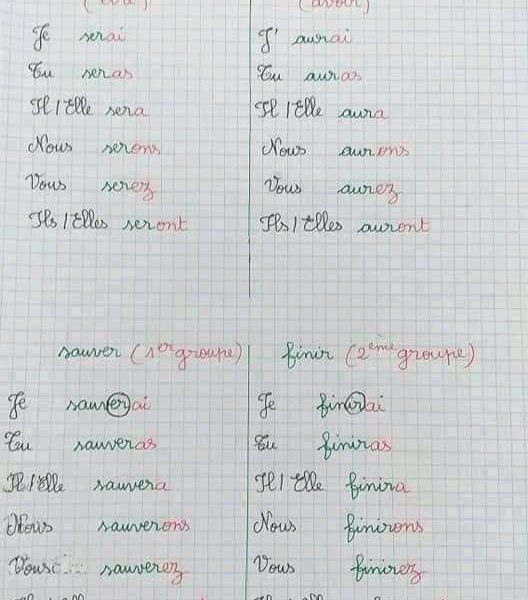 (être) (avoir)
Je serai J' aurai
Tu seras Tu auras
Il/Elle sera Il/Elle aura
Nous serons Nous aurons
Vous serez Vous aurez
Ils/Elles seront Ils/Elles auront
sauver (1er groupe) finir (2ème groupe)
Je sauverai Je finirai
Tu sauveras Tu finiras
Il/Elle sauvera Il/Elle finira
Nous sauverons Nous finirons
Vous sauverez Vous finirez